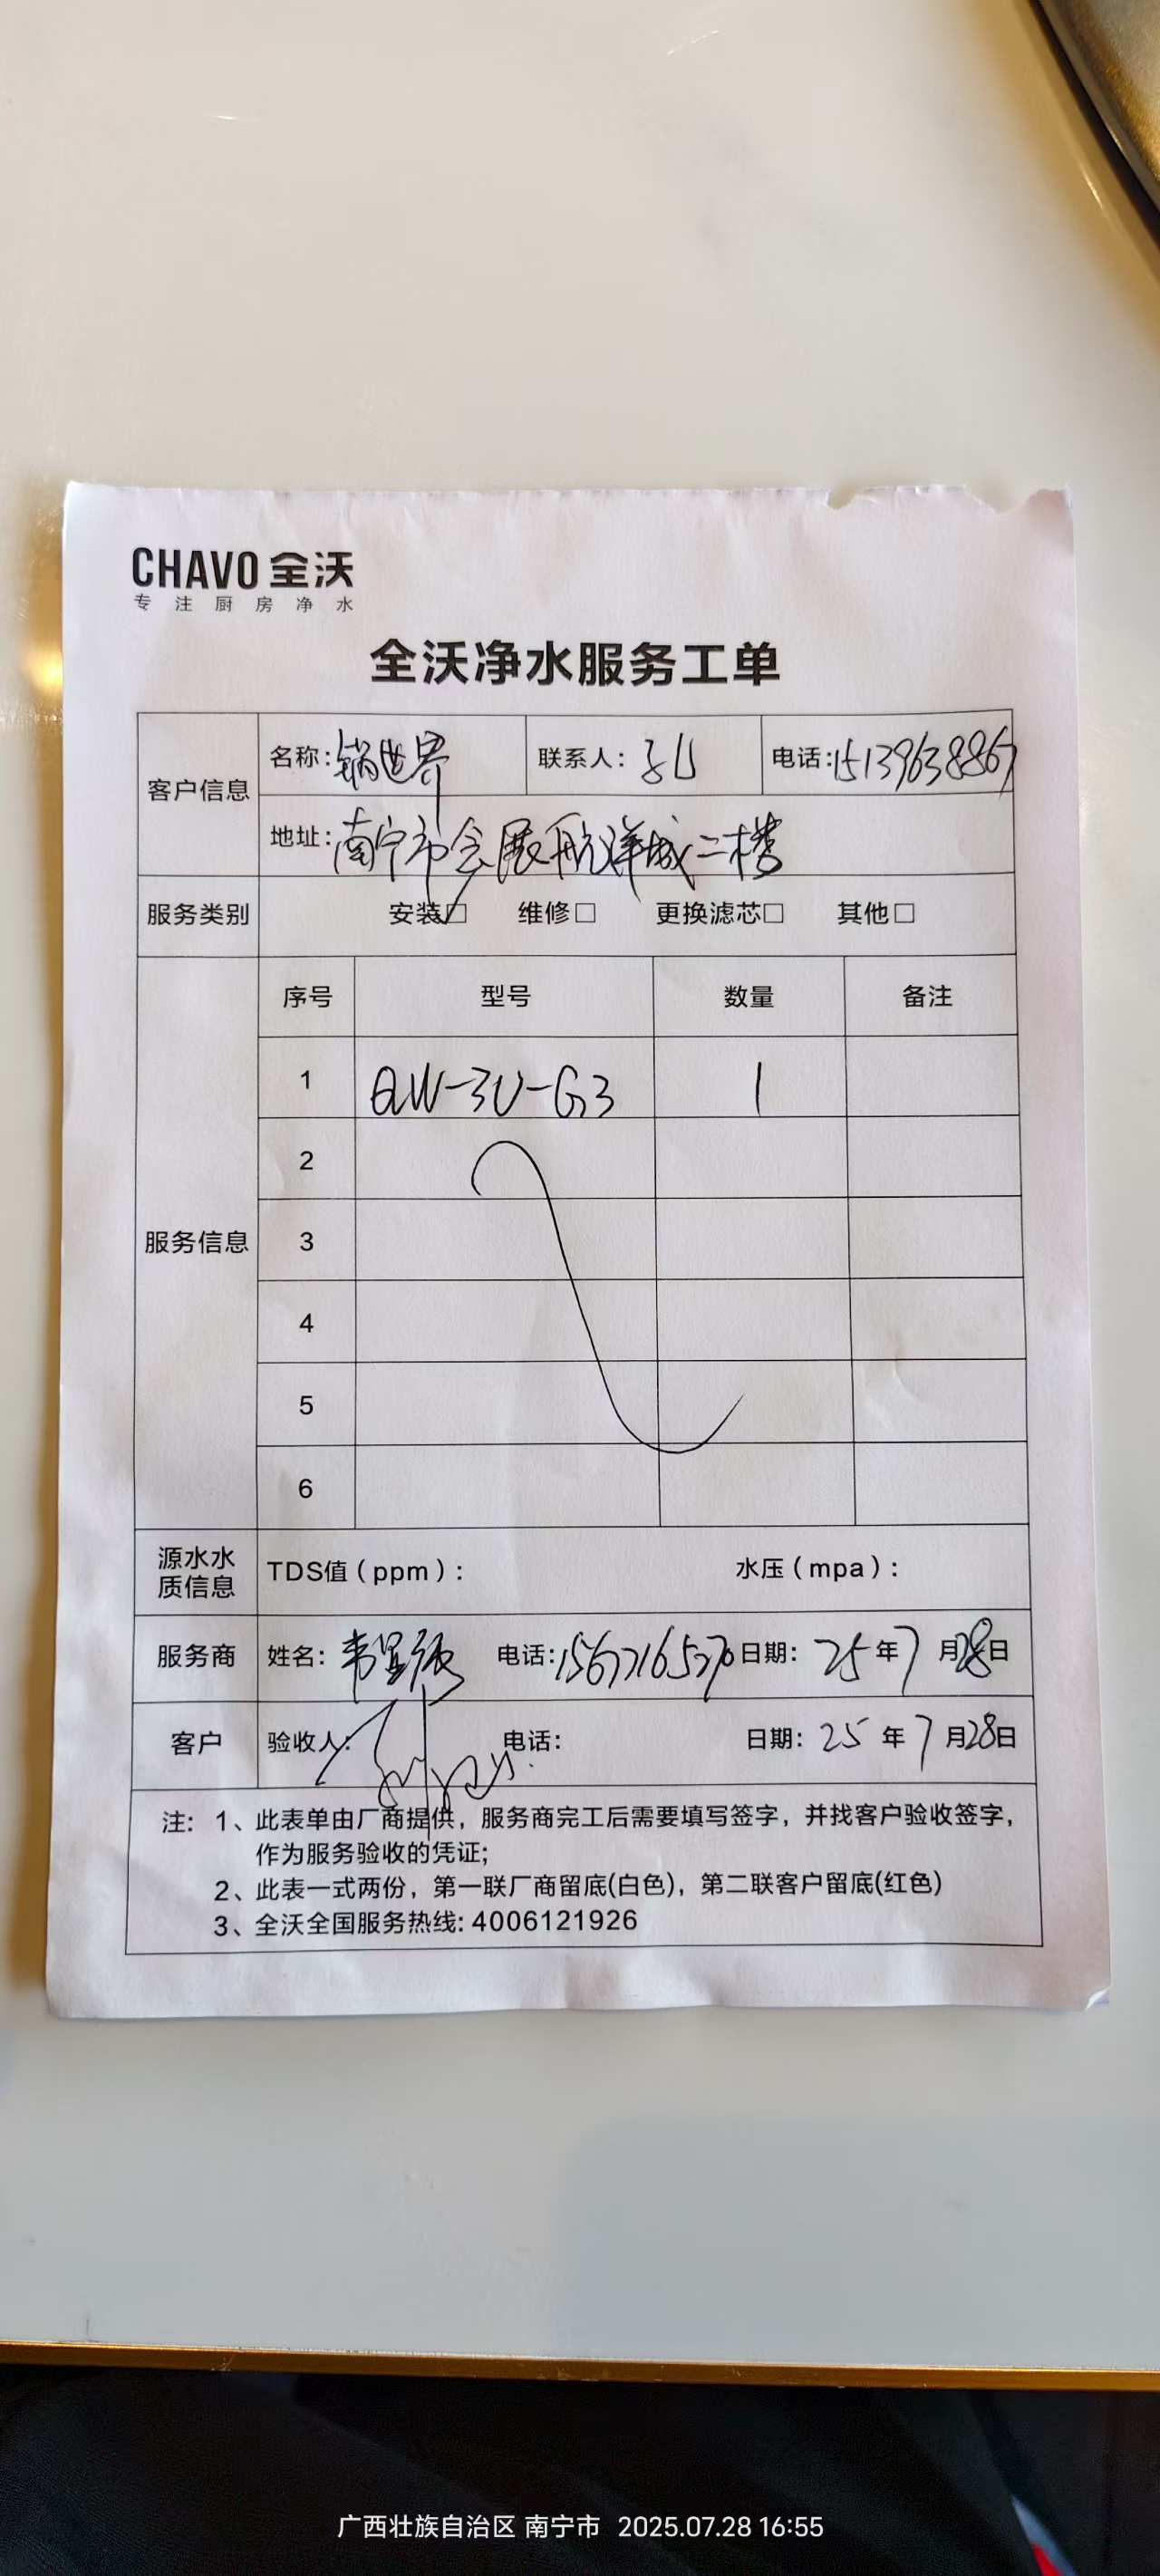 CHAVO 全沃
专注厨房净水
全沃净水服务工单
客户信息
名称:锅世界 联系人: 电话:15139638867
地址:南宁市会展航洋城二楼
服务类别 安装☑ 维修□ 更换滤芯□ 其他□
服务信息
序号 型号 数量 备注
1 QW-3U-G3 1
2
3
4
5
6
源水水质信息 TDS值(ppm): 水压(mpa):
服务商 姓名: 电话: 日期: 25年7月28日
客户 验收人: 电话: 日期: 25年7月28日
注: 1、此表单由厂商提供,服务商完工后需要填写签字,并找客户验收签字,
作为服务验收的凭证;
2、此表一式两份,第一联厂商留底(白色),第二联客户留底(红色)
3、全沃全国服务热线: 4006121926
广西壮族自治区 南宁市 2025.07.28 16:55